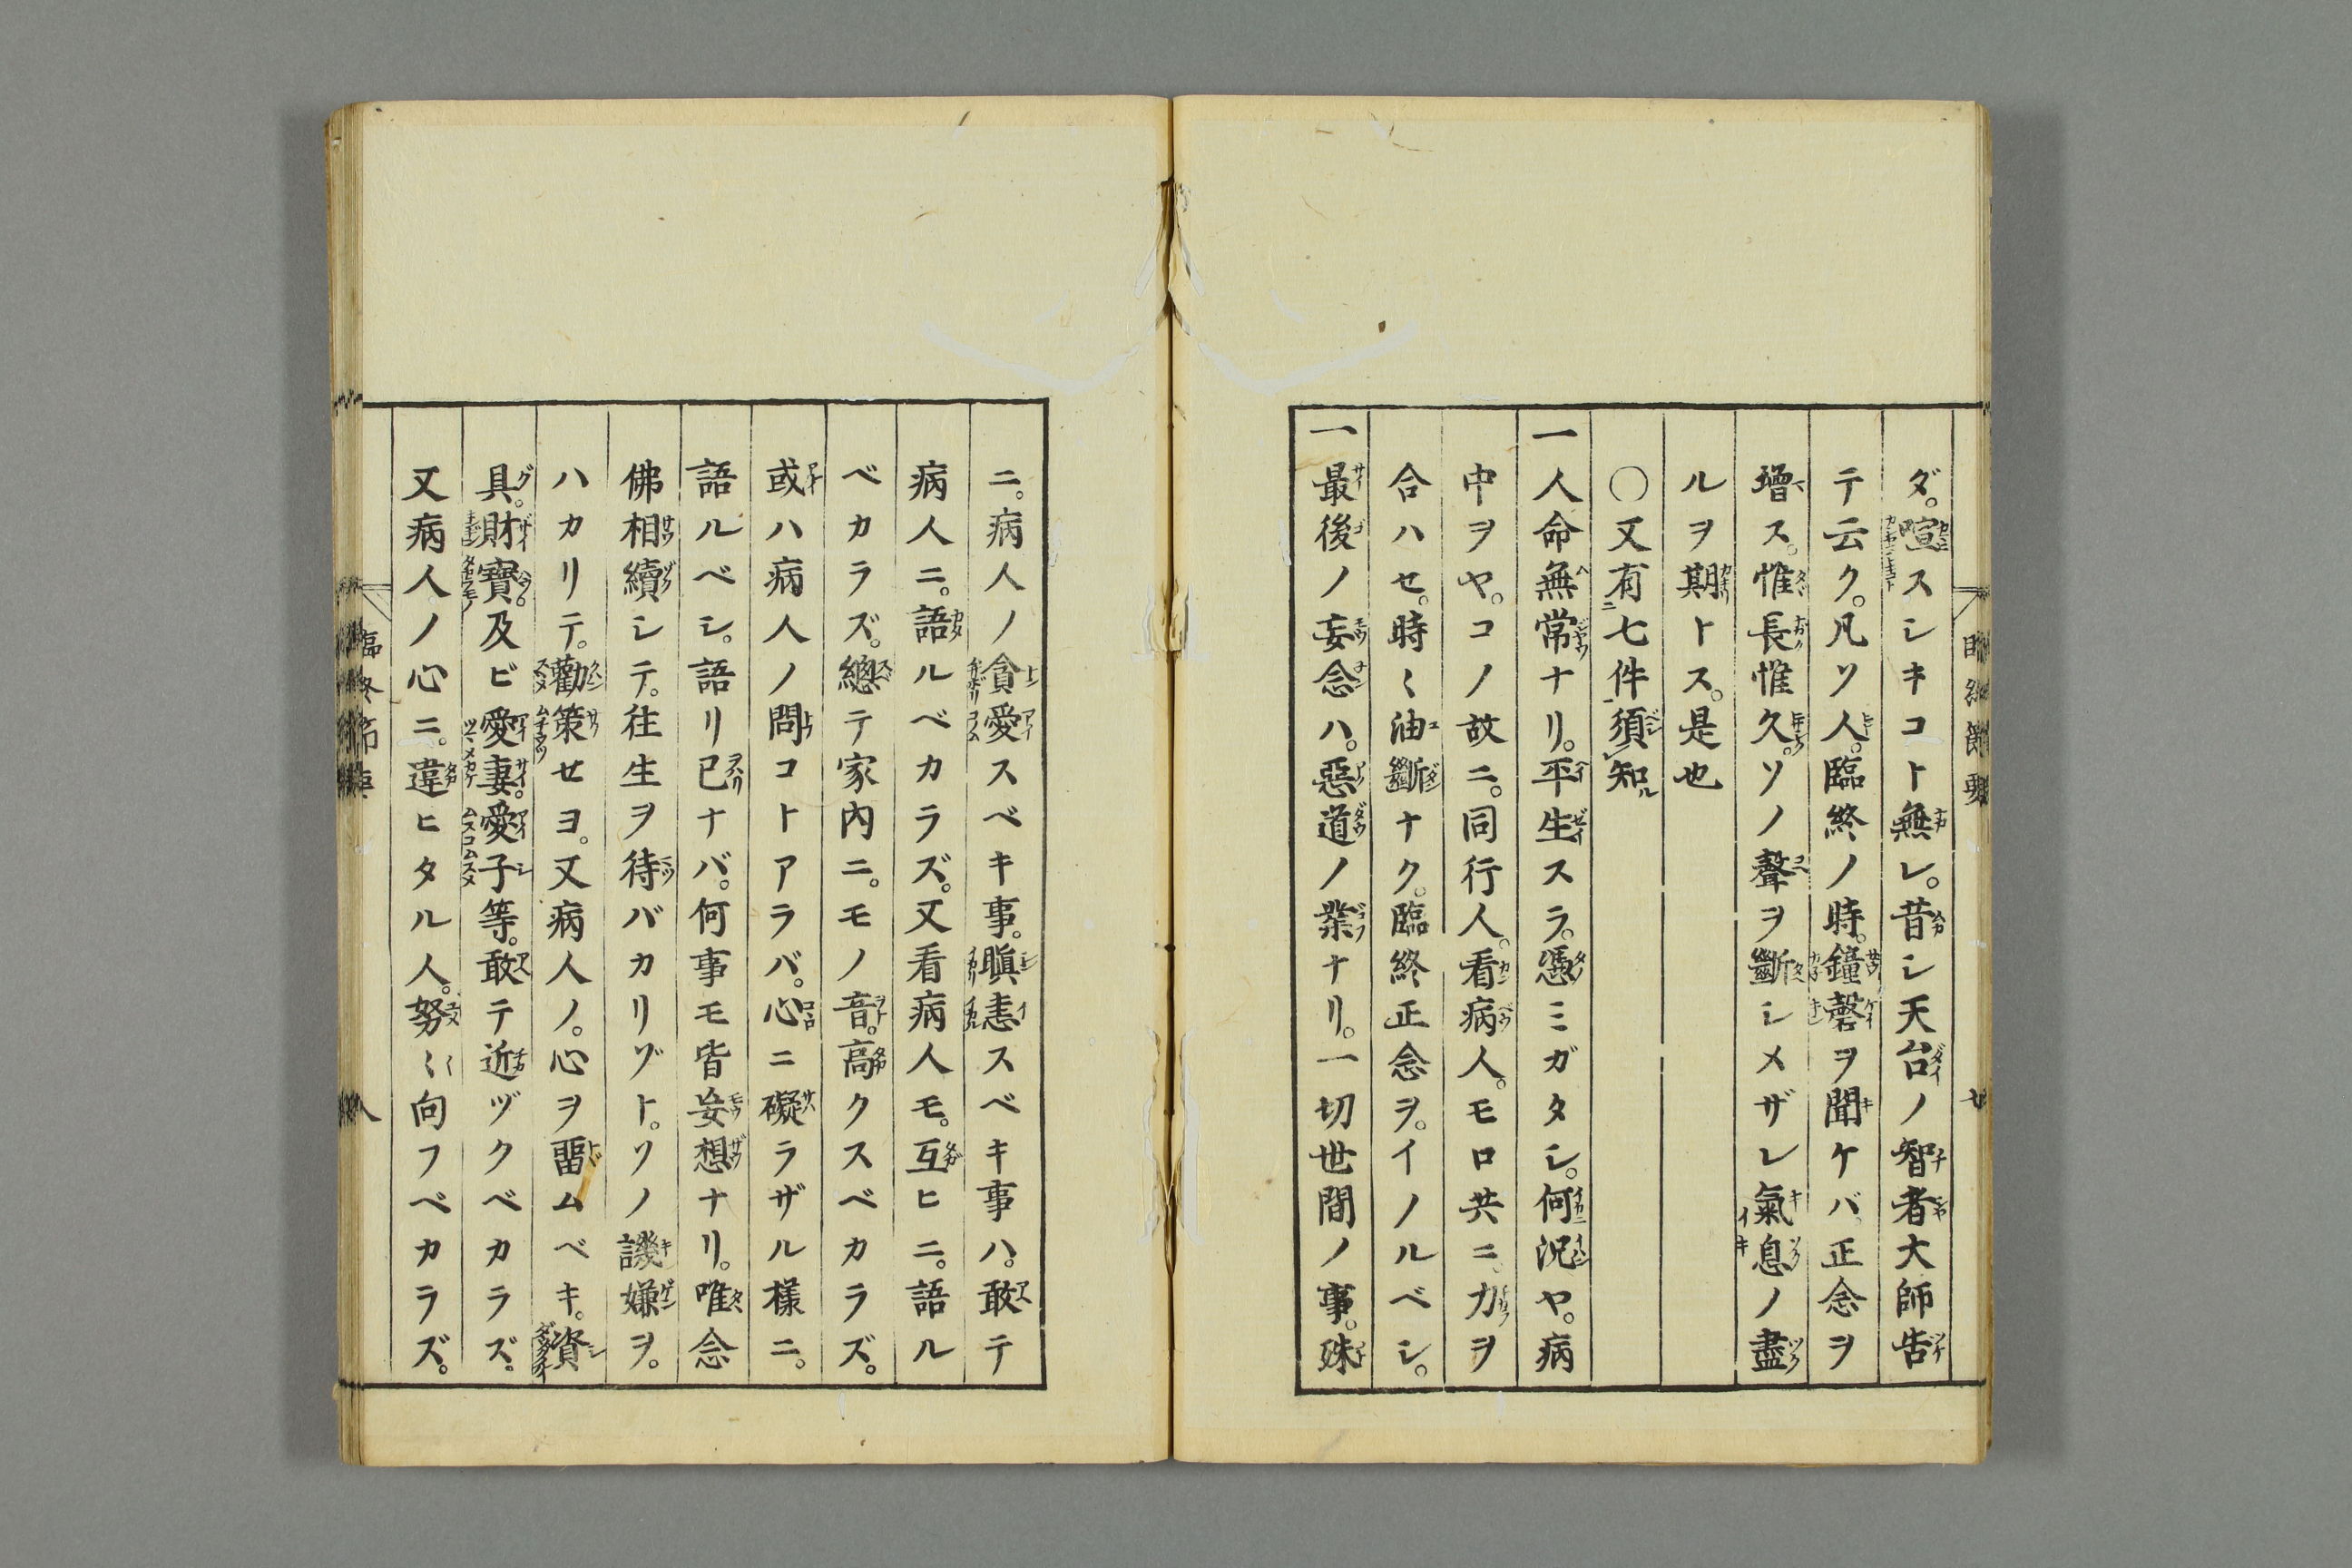 ダ。喧スシキコト無レ。昔シ天台ノ智者大師告
テ云ク。凡ソ人。臨終ノ時。鐘磬ヲ聞ケバ。正念ヲ
増ス。惟長惟久。ソノ聲ヲ斷シメザレ氣息ノ盡
ルヲ期トス。是也
〇又有二七件一須レ知ル
一人命無常ナリ。平生スラ。憑ミガタシ。何況ヤ。病
中ヲヤ。コノ故ニ。同行人。看病人。モロ共ニ。力ヲ
合ハセ。時〻油斷ナク。臨終正念ヲ。イノルベシ。
一最後ノ妄念ハ。惡道ノ業ナリ。一切世間ノ事。殊
ニ。病人ノ貪愛スベキ事。瞋恚スベキ事ハ。敢テ
病人ニ。語ルベカラズ。又看病人モ。互ヒニ。語ル
ベカラズ。總テ家內ニ。モノノ音。高クスベカラズ。
或ハ病人ノ問コトアラバ。心ニ礙ラザル樣ニ。
語ルベシ。語リ已ナバ。何事モ皆妄想ナリ。唯念
佛相續シテ。往生ヲ待バカリゾト。ソノ譏嫌ヲ。
ハカリテ。勸策セヨ。又病人ノ。心ヲ畱ムベキ。資
具。財寶。及ビ愛妻。愛子等。敢テ近ヅクベカラズ。
又病人ノ心ニ。違ヒタル人。努〻向フベカラズ。
臨終節要
八